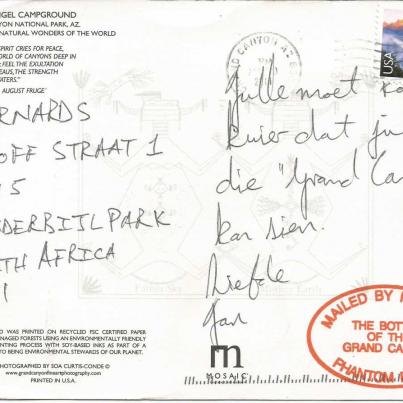 NGEL CAMPGROUND
YON NATIONAL PARK, AZ.
NATURAL WONDERS OF THE WORLD
SPIRIT CRIES FOR PEACE,
ORLD OF CANYONS DEEP IN
FEEL THE EXULTATION
EAUS, THE STRENGTH
ATERS."
AUGUST FRUGE
RNARDS
OFF STRAAT 1
5
DERBIJLPARK
TH AFRICA
1
CANYON AZ
USA
Julle moet ko
kuier dat ju
die "Grand Ca
kan sien.
Liefde
Jan
Father Sky
Mother Earth
MAILED BY
THE BOTT
OF TH
GRAND CA
PHANTOM
D WAS PRINTED ON RECYCLED FSC CERTIFIED PAPER
ANAGED FORESTS USING AN ENVIRONMENTALLY FRIENDLY
NTING PROCESS WITH SOY-BASED INKS AS PART OF A
TO BEING ENVIRONMENTAL STEWARDS OF OUR PLANET.
PHOTOGRAPHED BY SOA CURTIS-CONDE ©
www.grandcanyontheamphotography.com
PRINTED IN U.S.A.
m
MOSAIC